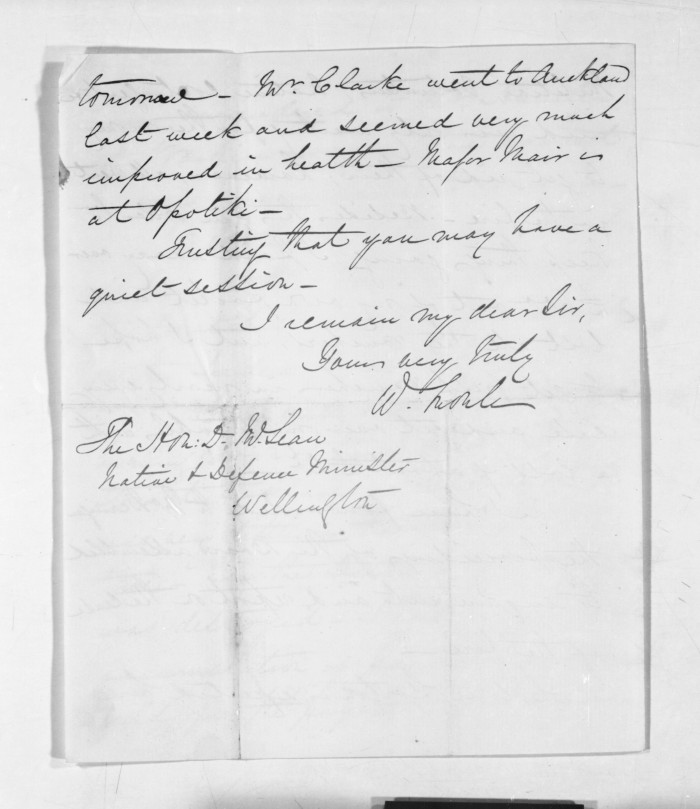 tomorrow – Mr. Clarke went to Auckland
last week and seemed very much
improved in health – Major Mair is
at Opotiki –
Trusting that you may have a
quiet session –
I remain my dear Sir,
Yours very truly
W.
The Hon: D. McLean
Native & Defence Minister
Wellington